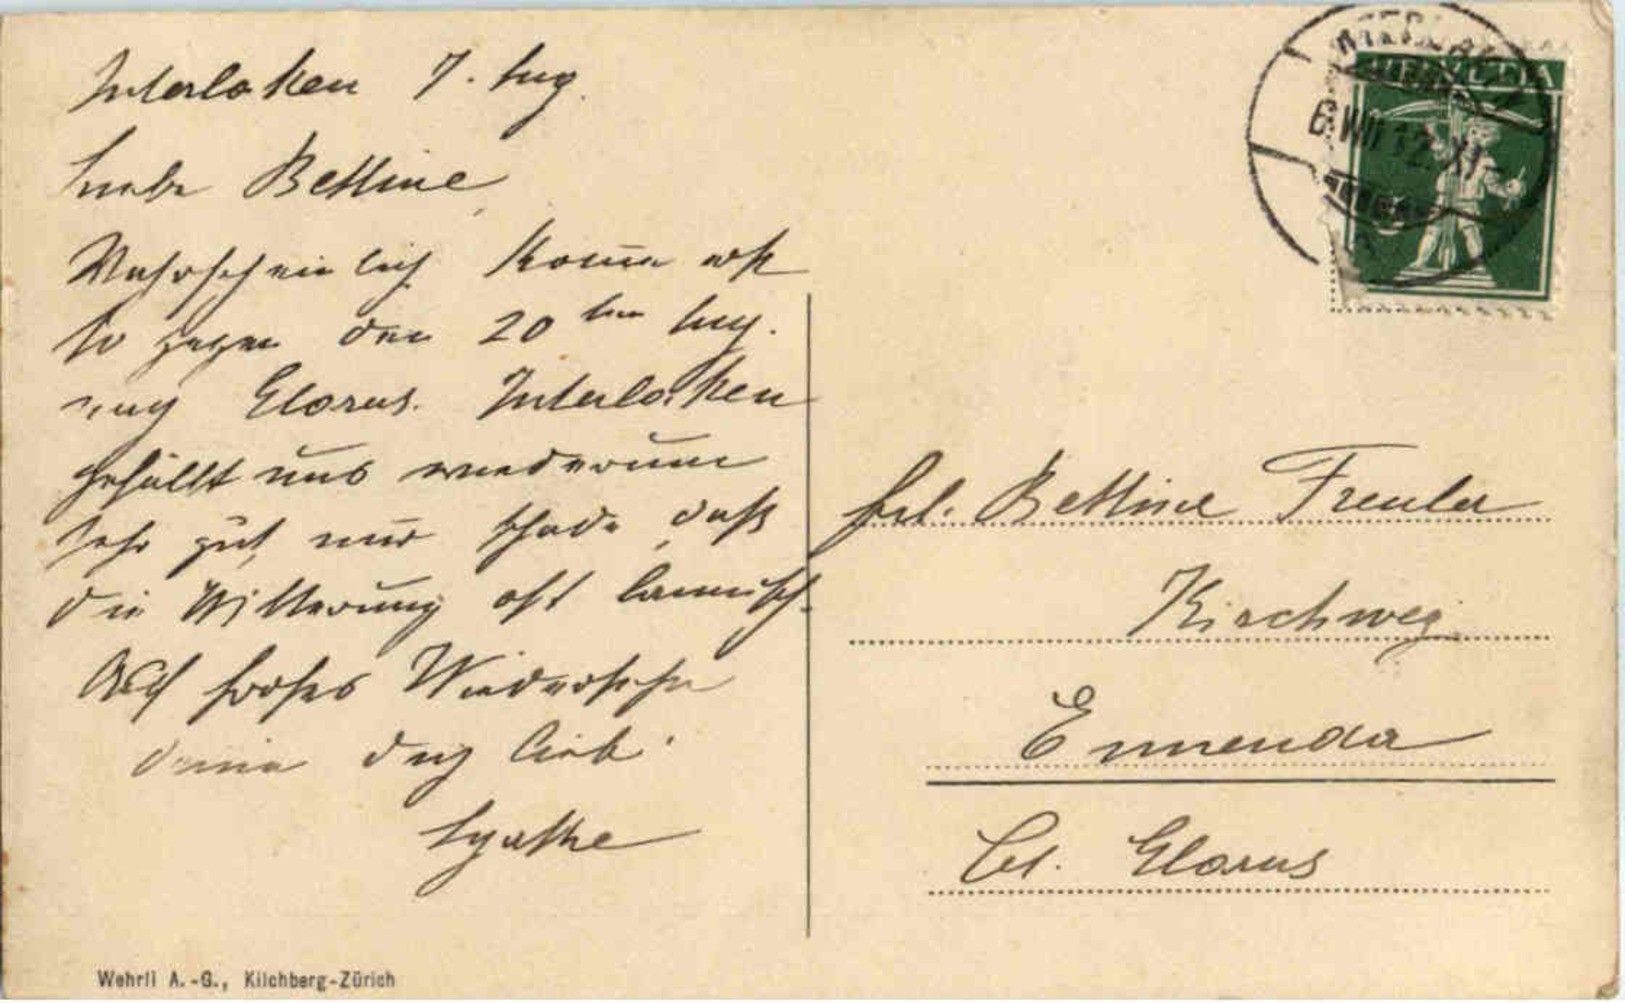 Interlaken 7. Aug.
Liebe Bettine
Wahrscheinlich komme erst
so gegen den 20ten Aug.
nach Glarus. Interlaken
gefällt uns wiederum
sehr gut, nur schade, daß
die Witterung oft launisch.
Auf frohes Wiedersehn
deine dich lieb.
Agathe
HELVETIA
6. VIII. 12. XI
Frl. Bettine Freuler
Kirchweg
Ennenda
Ct. Glarus
Wehrli A.-G., Kilchberg-Zürich